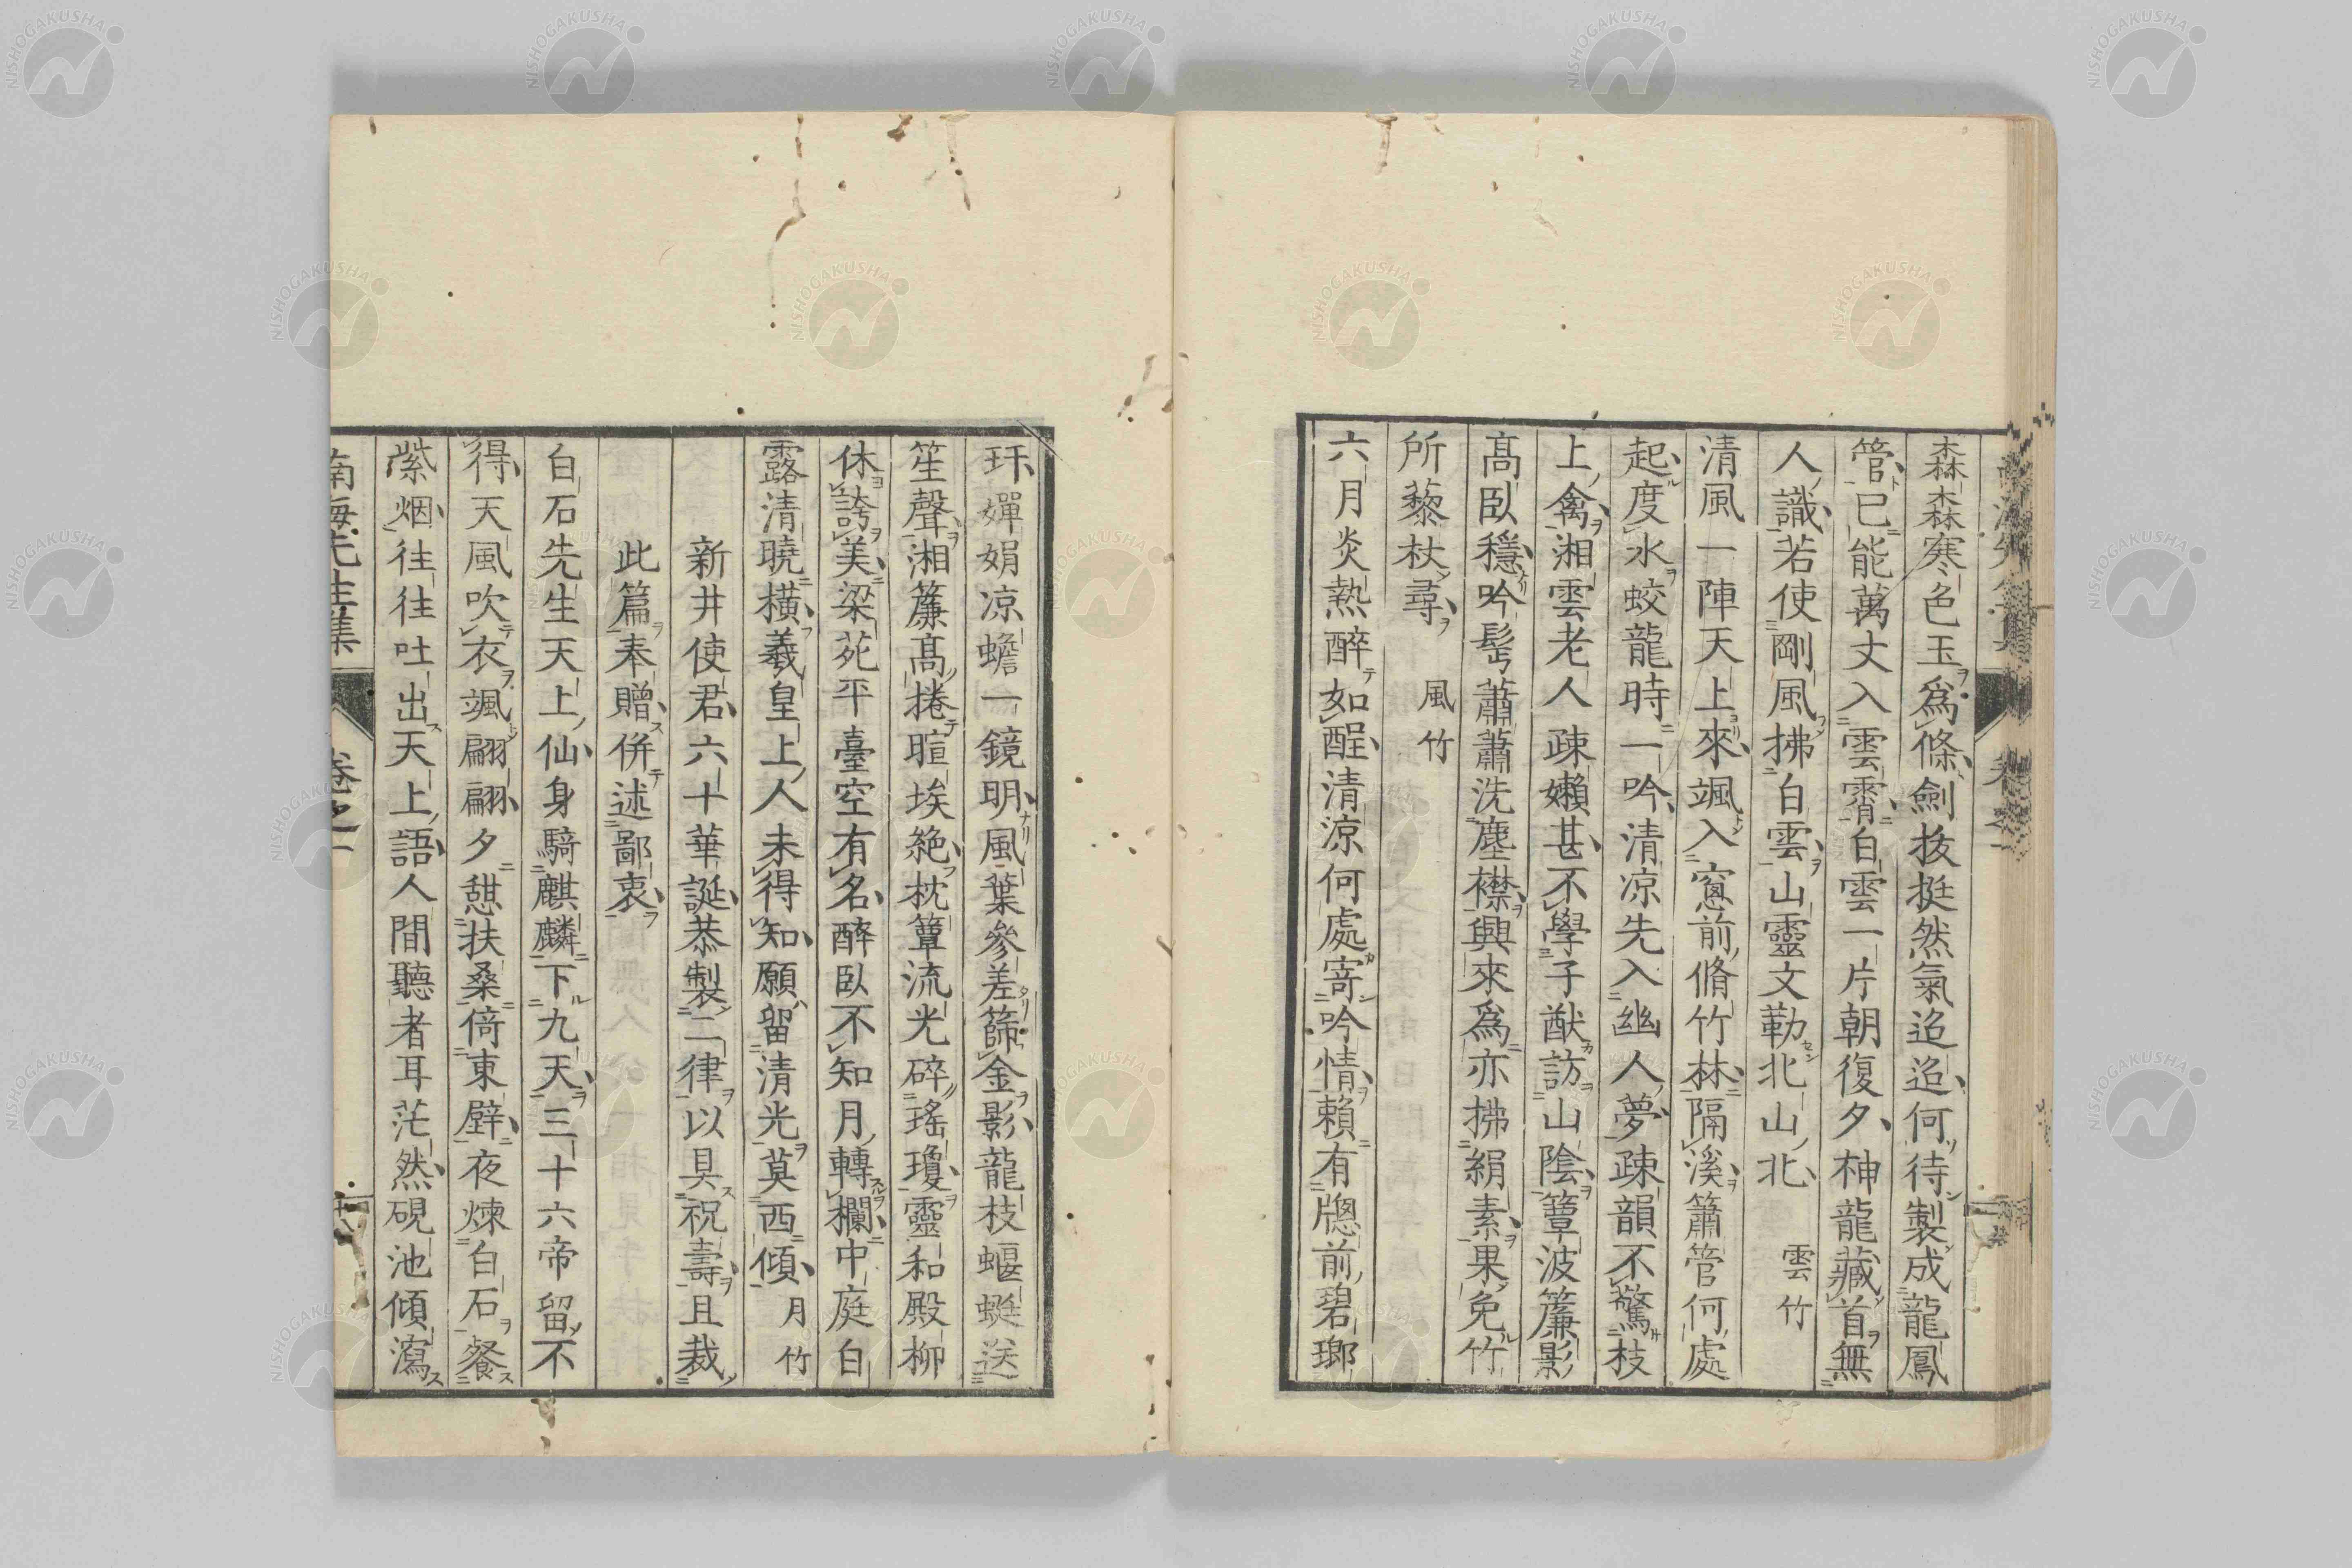 森森寒色玉爲條劍拔挺然氣迢迢何待製成龍鳳
管已能萬丈入雲霄白雲一片朝復夕神龍藏首無
人識若使剛風拂白雲山靈文勒北山北　雲竹
清風一陣天上來颯入窻前脩竹林隔溪簫管何處
起度水蛟龍時一吟清凉先入幽人夢疎韻不驚枝
上禽湘雲老人疎嬾甚不學子猷訪山陰簟波簾影
髙臥穩吟髩蕭蕭洗塵襟興來爲亦拂絹素果免竹
所藜杖尋　風竹
六月炎熱醉如酲清涼何處寄吟情賴有牕前碧瑯
玕嬋娟凉蟾一鏡明風葉參差篩金影龍枝蝘蜓送
笙聲湘簾髙捲暄埃絶枕簟流光碎瑤瓊靈和殿柳
休誇美梁苑平臺空有名醉臥不知月轉欄中庭白
露清曉橫羲皇上人未得知願留清光莫西傾　月竹
新井使君六十華誕恭製二律以具祝壽且裁
此篇奉贈併述鄙衷
白石先生天上仙身騎麒麟下九天三十六帝留不
得天風吹衣颯翩翩夕憇扶桑倚東壁夜煉白石餐
紫烟往往吐出天上語人間聽者耳茫然硯池傾瀉
南海先生集　卷之一
NISHOGAKUSHA